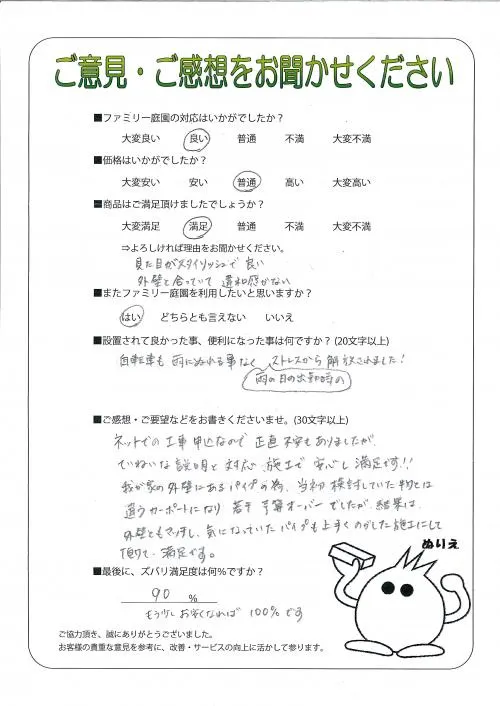 ご意見・ご感想をお聞かせください
■ファミリー庭園の対応はいかがでしたか？
大変良い 良い 普通 不満 大変不満
■価格はいかがでしたか？
大変安い 安い 普通 高い 大変高い
■商品はご満足頂けましたでしょうか？
大変満足 満足 普通 不満 大変不満
⇒よろしければ理由をお聞かせください。
見た目がスタイリッシュで良い
外壁と合っていて違和感がない
■またファミリー庭園を利用したいと思いますか？
はい どちらとも言えない いいえ
■設置されて良かった事、便利になった事は何ですか？(20文字以上)
自転車も雨にぬれる事なくストレスから解放されました！
雨の日の出勤時の
■ご感想・ご要望などをお書きくださいませ。(30文字以上)
ネットでの工事申込なので正直不安もありましたが、
ていねいな説明と対応、施工で安心し満足です!!
我が家の外壁にあるパイプの為、当初検討していた物とは
違うカーポートになり若干予算オーバーでしたが、結果は
外壁ともマッチし、気になっていたパイプも上手くのがした施工にして
頂けて満足です。
ぬりえ
■最後に、ズバリ満足度は何％ですか？
90 %
もう少しお安くなれば100%です
ご協力頂き、誠にありがとうございました。
お客様の貴重な意見を参考に、改善・サービスの向上に活かして参ります。